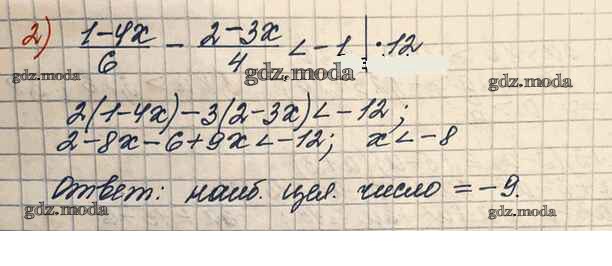 2) (1-4x)/6 - (2-3x)/4 < -1 | ·12
gdz.moda gdz.moda gdz.moda
2(1-4x)-3(2-3x)<-12;
2-8x-6+9x<-12; x<-8
Ответ: наиб. цел. число = -9.
gdz.moda gdz.moda